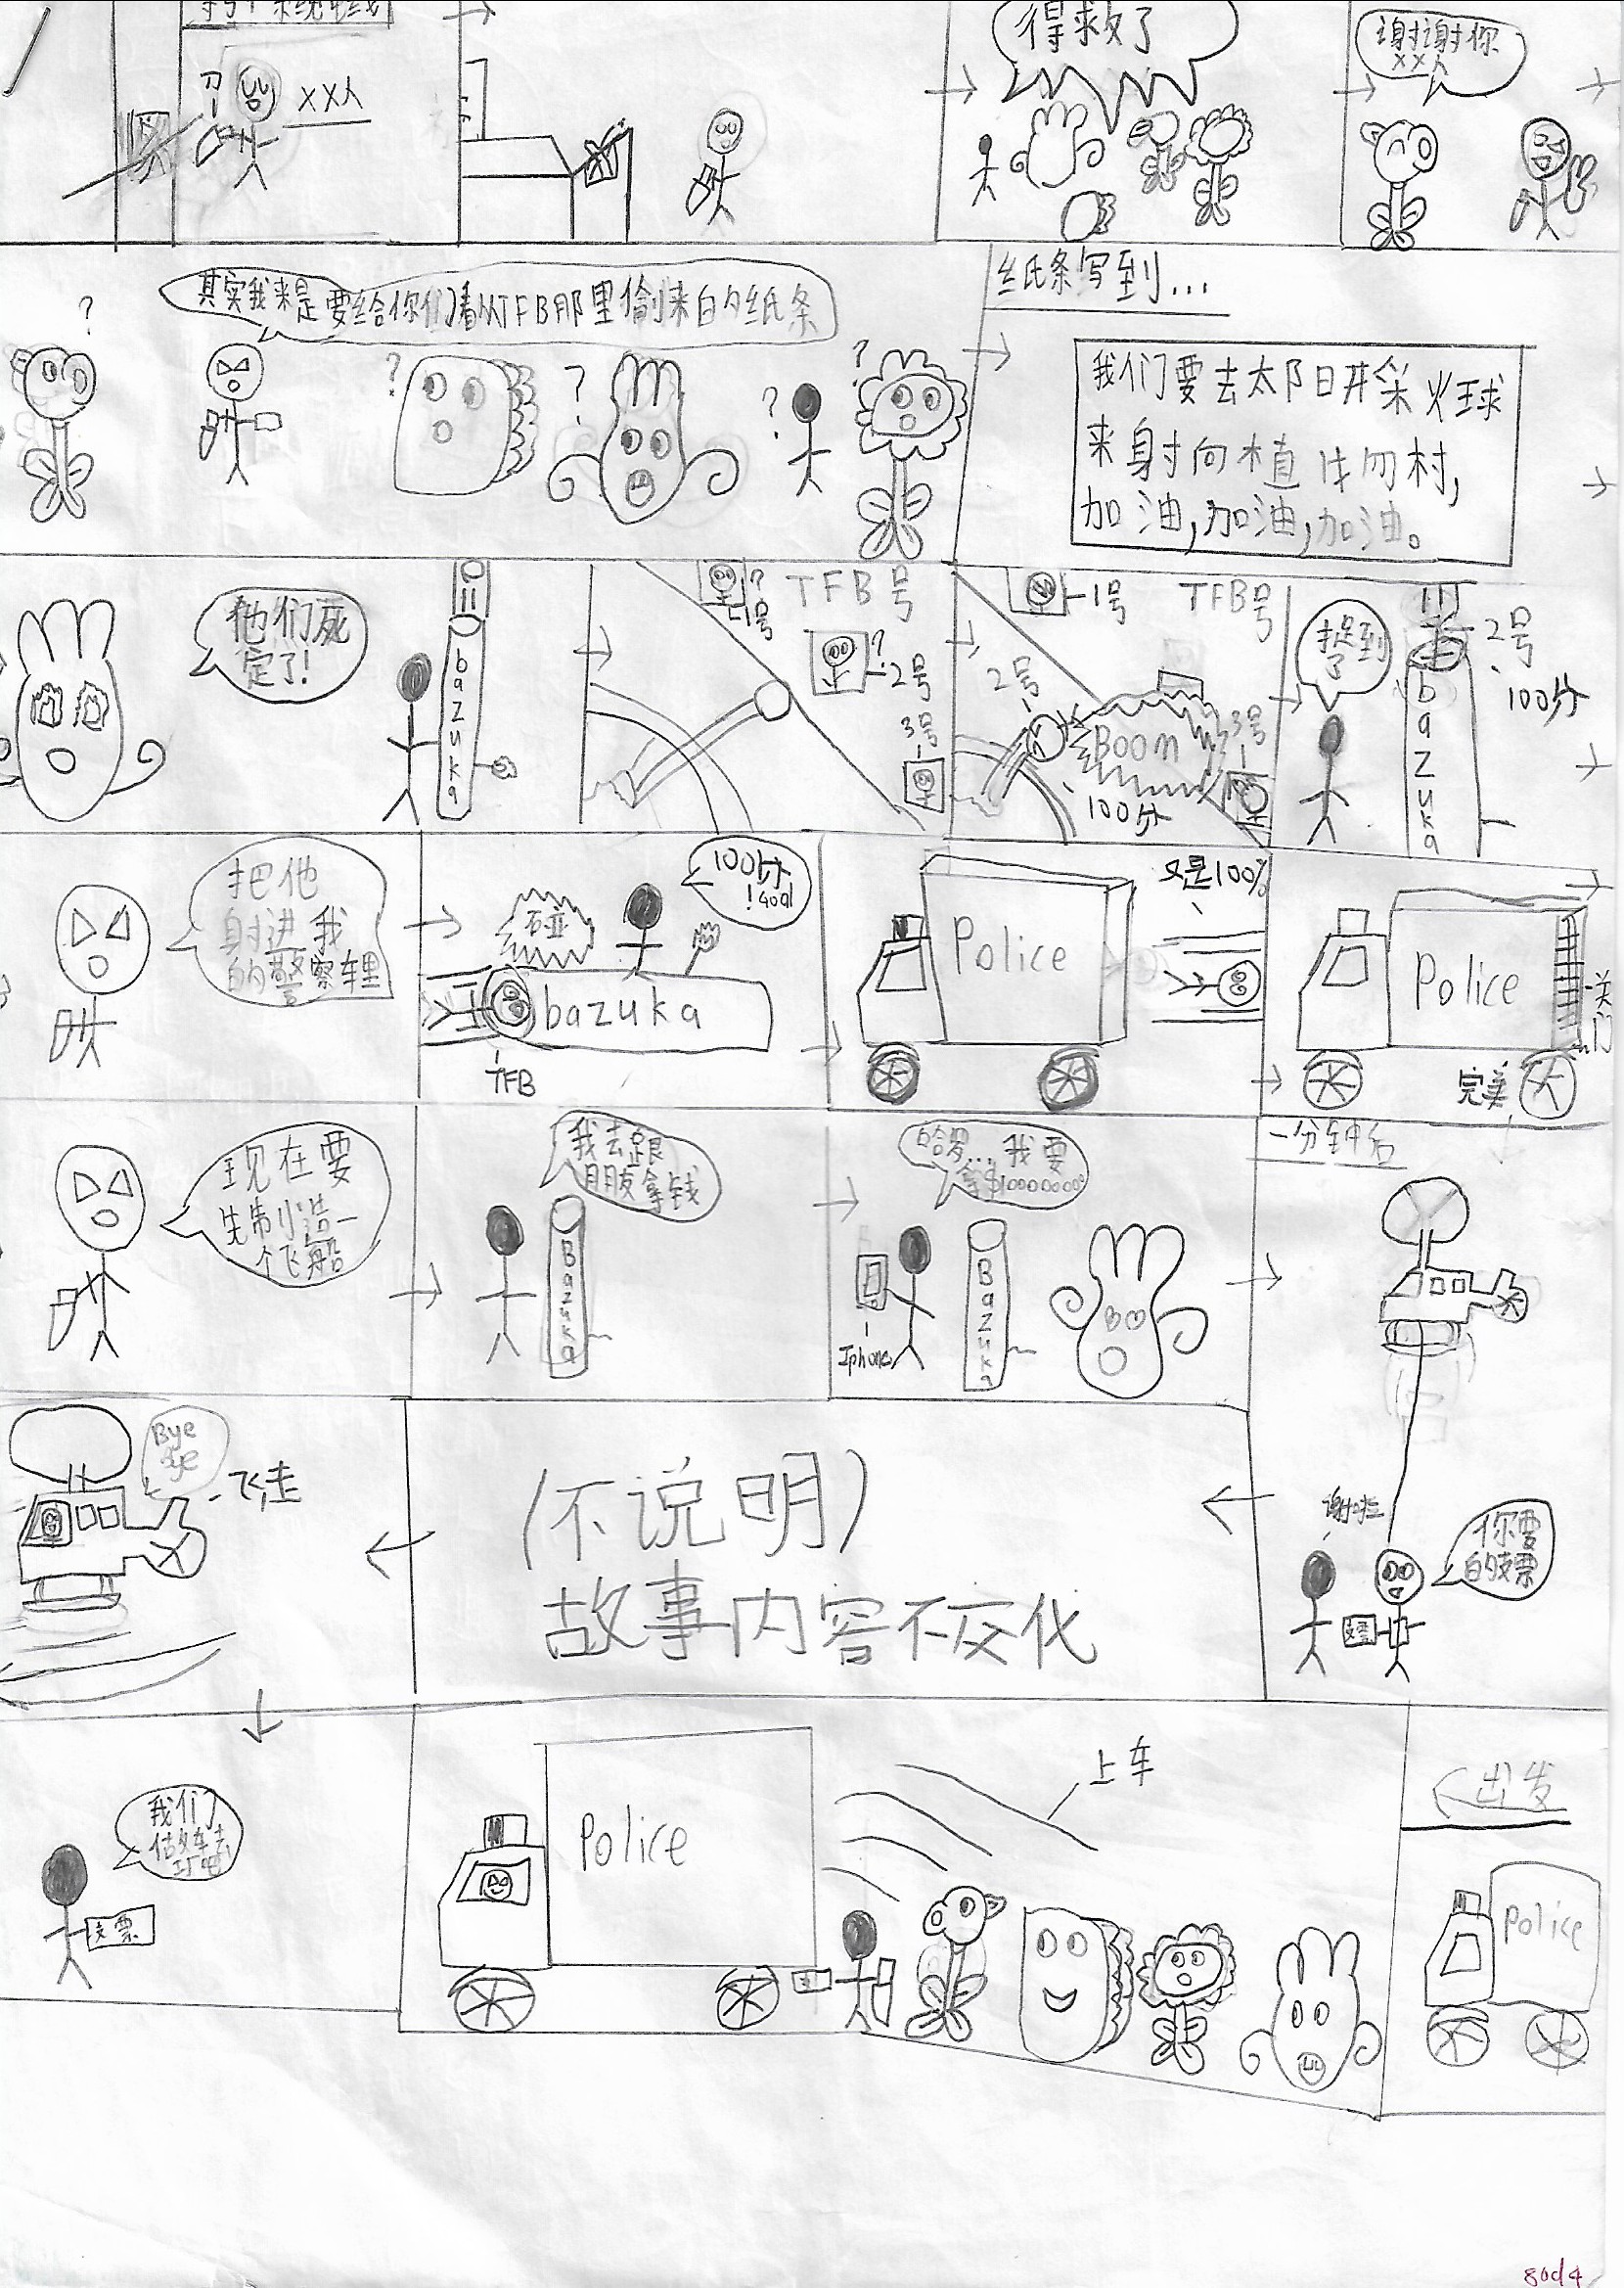 刀
XXX人
得救了
谢谢你
XX人
?
其实我来是要给你们看从TFB那里偷来的纸条
?
?
?
?
纸条写到...
我们要去太阳开采火球
来射向植物村,
加油,加油,加油。
他们死
定了!
bazuka
?
1号
TFB号
?
2号
3号
1号
TFB号
2号
BOOM
3号
100分
捉到
了
2号
100分
bazuka
把他
射进我
的警察车里
碰
100分
!goal
bazuka
TFB
Police
又是100%
Police
关门
完美
现在要
先制造一
个飞船
我去跟
朋友拿钱
Bazuka
哈罗...我要
拿$10000000
Iphone
Bazuka
一分钟后
谢啦
你要
的支票
支票
Bye
Bye
飞走
(不说明)
故事内容不变化
我们
支票
Police
上车
出发
Police
8od4